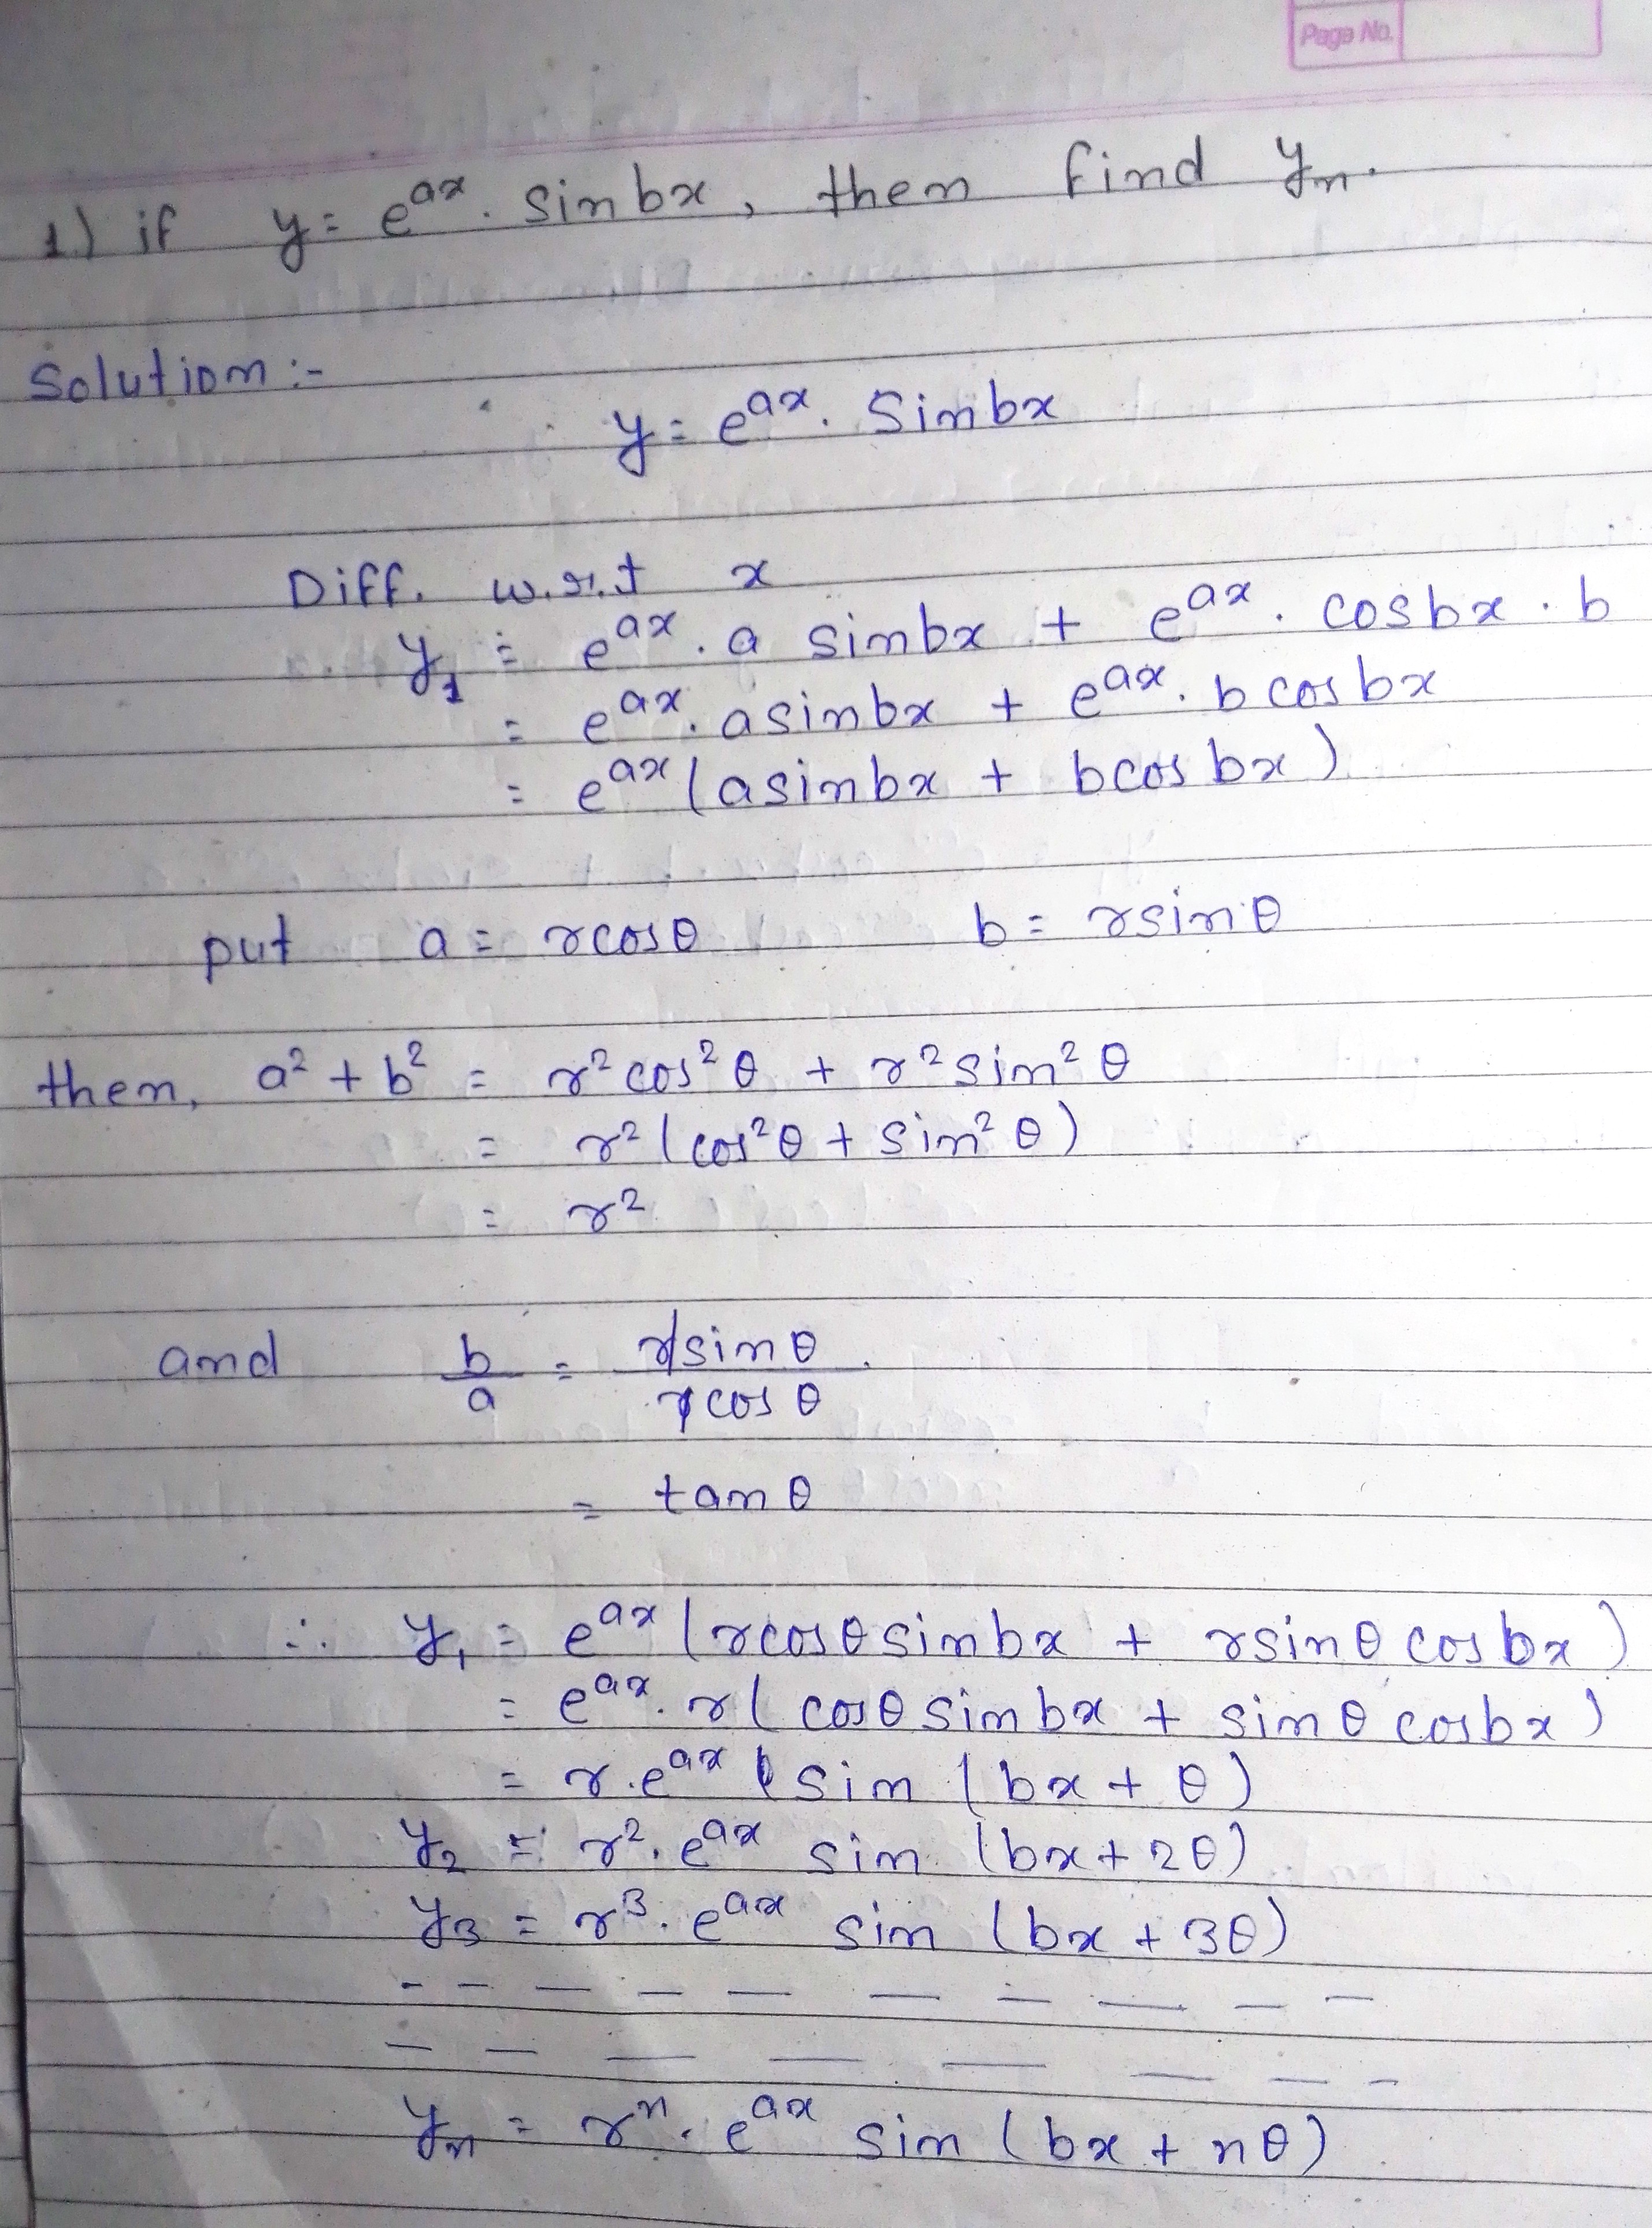 Page No.
1) if y = e^ax . sinbx , then find yn.
Solution :-
y = e^ax . Sinbx
Diff. w.r.t x
y1 = e^ax . a sinbx + e^ax . cosbx . b
= e^ax . asinbx + e^ax . b cosbx
= e^ax (asinbx + bcosbx)
put a = rcosθ b = rsinθ
then, a² + b² = r²cos²θ + r²sin²θ
= r²(cos²θ + sin²θ)
= r²
and b/a = rsinθ/rcosθ
= tanθ
∴ y1 = e^ax (rcosθsinbx + rsinθcosbx)
= e^ax . r(cosθsinbx + sinθcosbx)
= r.e^ax sin (bx + θ)
y2 = r².e^ax sin (bx+2θ)
y3 = r³.e^ax sin (bx + 3θ)
- - - - - - - - - -
- - - - - - - -
yn = r^n . e^ax sin (bx + nθ)